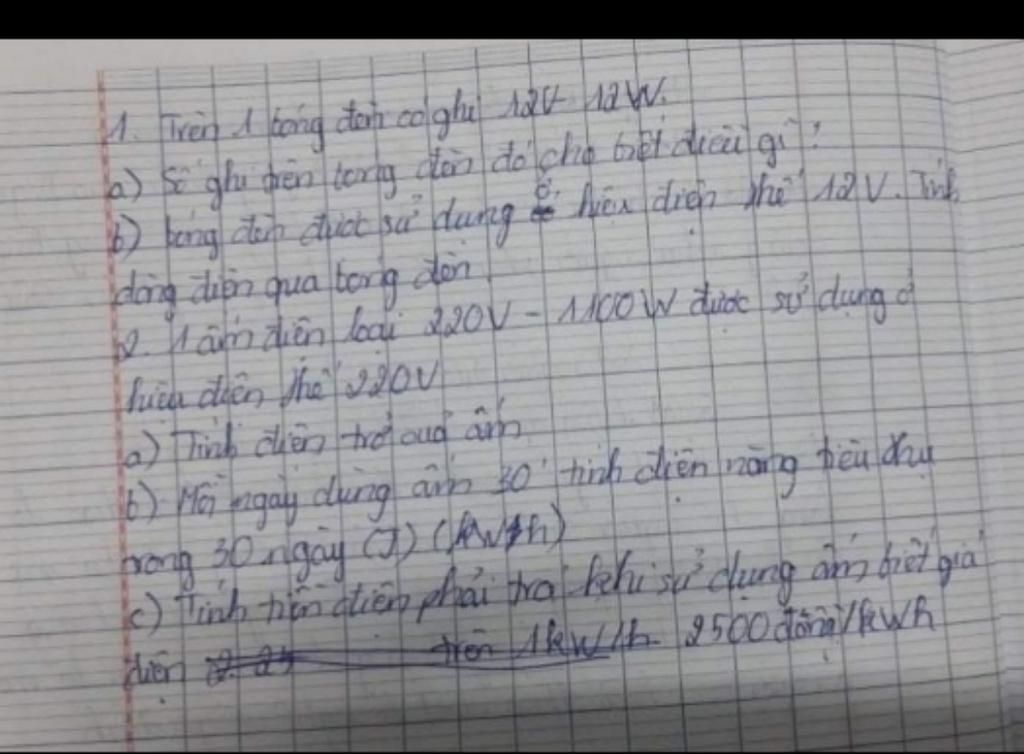 1. Trên 1 bóng đèn có ghi 12V 12W.
a) Số ghi trên bóng đèn đó cho biết điều gì?
b) bóng đèn được sử dụng ở hiệu điện thế 12V. Tính
dòng điện qua bóng đèn
2. 1 ấm điện loại 220V - 1100W được sử dụng ở
hiệu điện thế 220V
a) Tính điện trở của ấm
b) Mỗi ngày dùng ấm 30' tính điện năng tiêu thụ
trong 30 ngày (J) (kWh)
c) Tính tiền điện phải trả khi sử dụng ấm biết giá
điện 2500 đồng/kWh